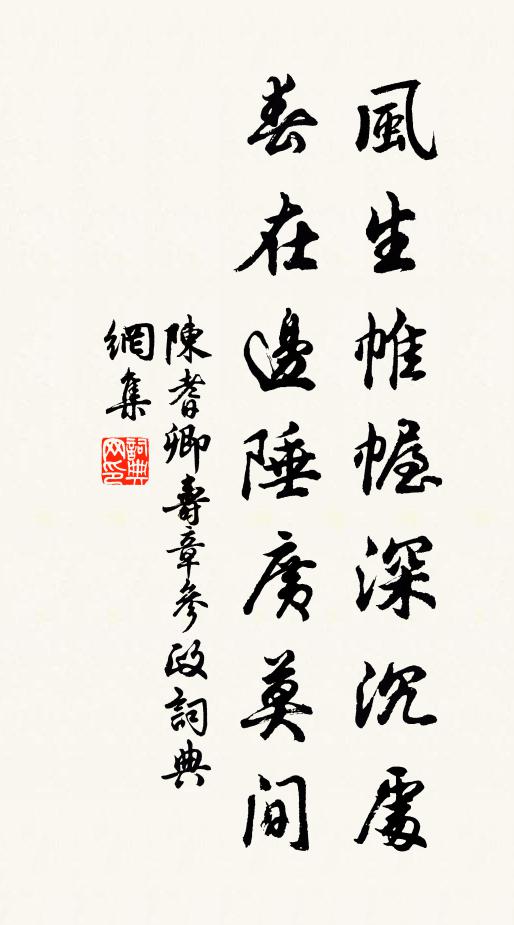 風生帷幄深沉處
春在邊陲廣莫間
陳耆卿壽章參政詞典
網集
詞典網印